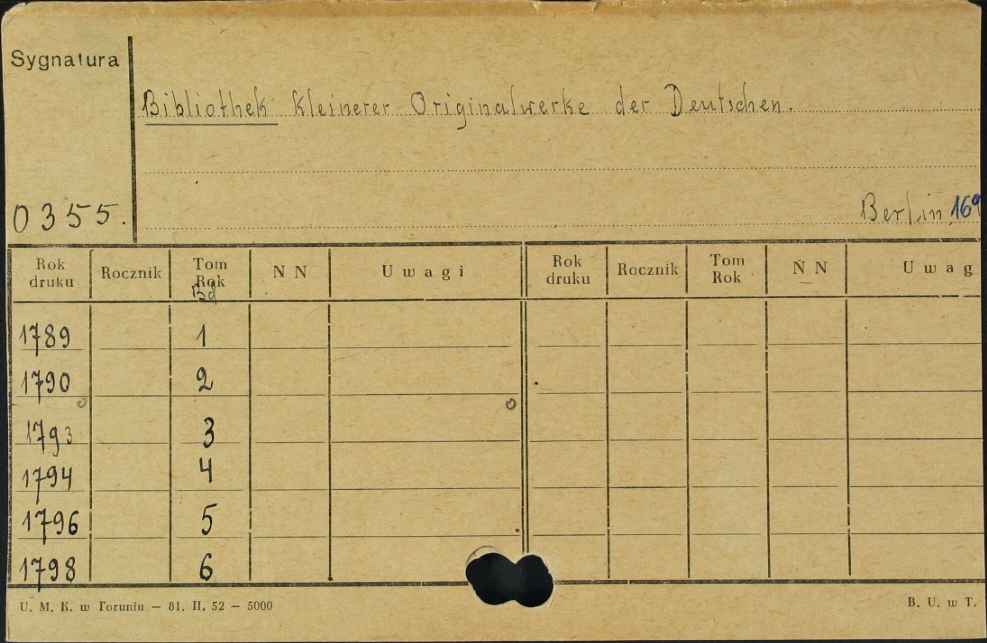 Sygnatura
Bibliothek kleinerer Originalwerke der Deutschen.
0355.
Berlin
Rok druku Rocznik Tom Rok Bd N N Uwagi Rok druku Rocznik Tom Rok N N Uwag
1789 1
1790 2
1793 3
1794 4
1796 5
1798 6
U. M. K. w Toruniu – 81. II. 52 – 5000
B. U. w T.